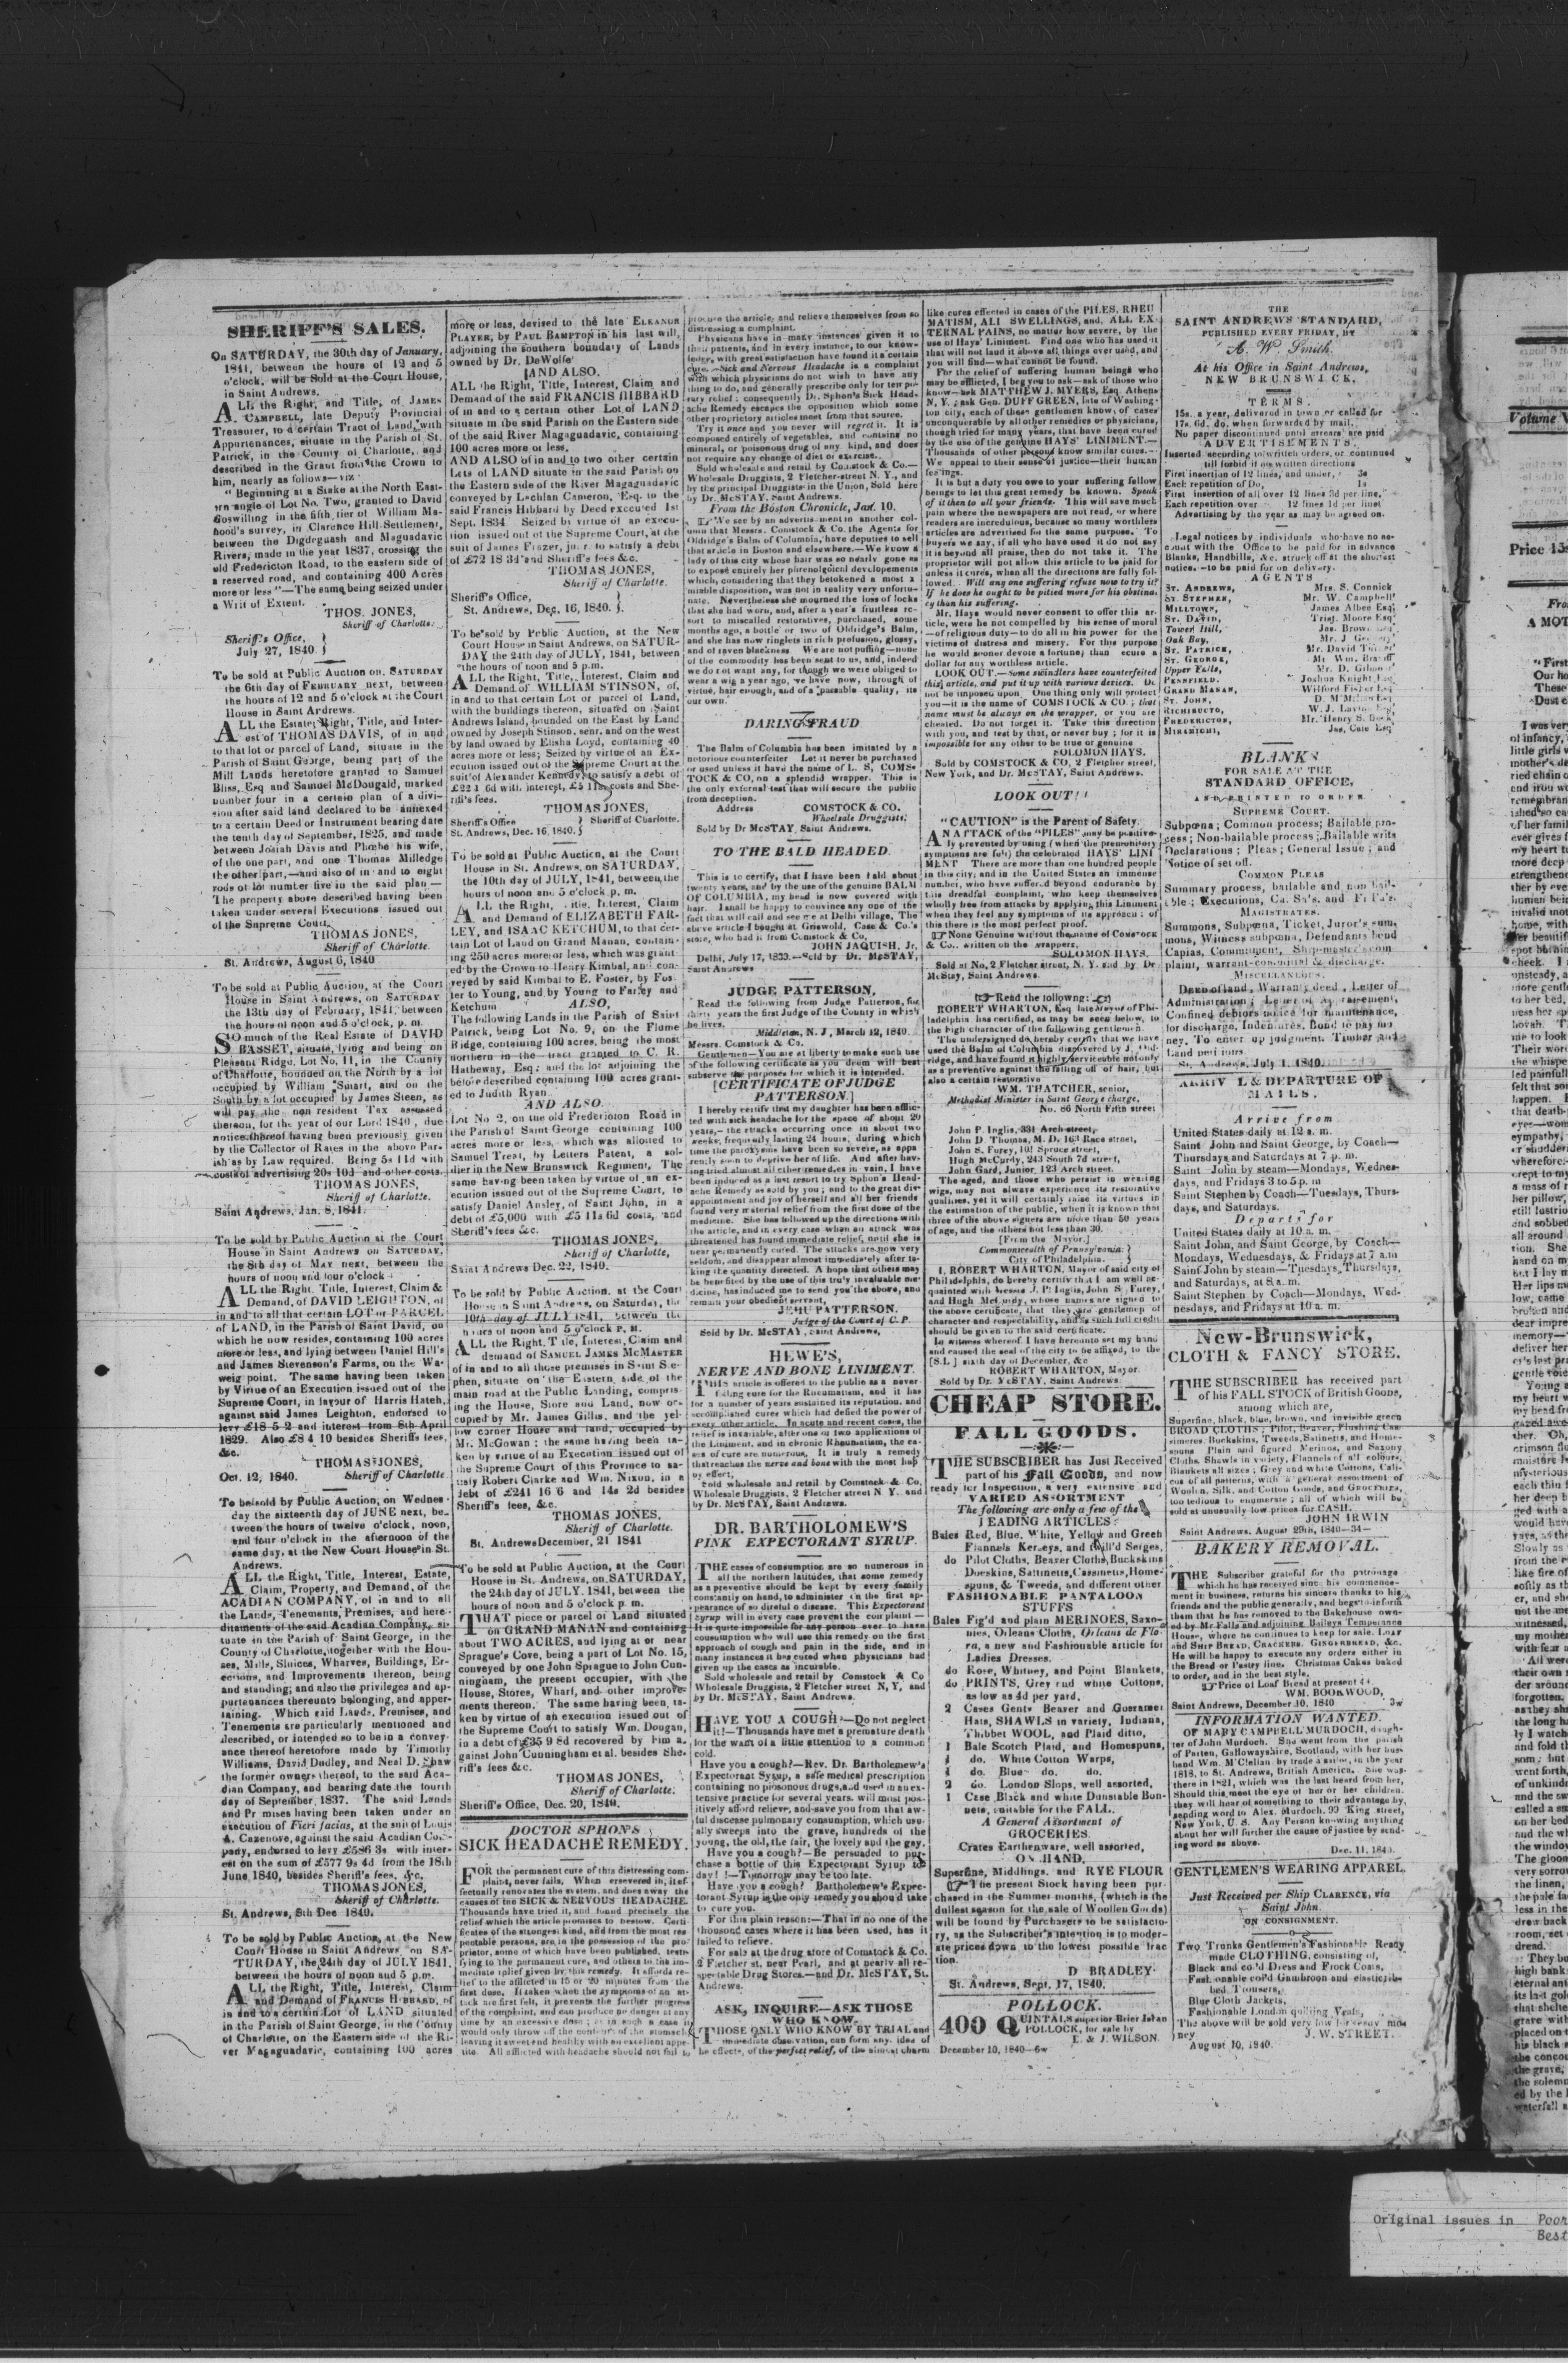 SHERIFF'S SALES.
On SATURDAY, the 30th day of January,
1841, between the hours of 12 and 5
o'clock, will be Sold at the Court House,
in Saint Andrews.
ALL the Right, and Title, of JAMES
CAMPBELL, late Deputy Provincial
Treasurer, to a certain Tract of Land, with
Appurtenances, situate in the Parish of St.
Patrick, in the County of Charlotte, and
described in the Grant from the Crown to
him, nearly as follows—viz
" Beginning at a Stake at the North East-
ern angle of Lot No. Two, granted to David
Goswilling in the fifth tier of William Ma-
hood's survey, in Clarence Hill Settlement,
between the Digdeguash and Maguadavic
Rivers, made in the year 1837, crossing the
old Fredericton Road, to the eastern side of
a reserved road, and containing 400 Acres
more or less"—The same being seized under
a Writ of Extent.
THOS. JONES,
Sheriff of Charlotte.
Sheriff's Office, }
July 27, 1840. }
To be sold at Public Auction on, SATURDAY
the 6th day of FEBRUARY next, between
the hours of 12 and 5 o'clock at the Court
House in Saint Andrews.
ALL the Estate, Right, Title, and Inter-
est of THOMAS DAVIS, of in and
to that lot or parcel of Land, situate in the
Parish of Saint George, being part of the
Mill Lands heretofore granted to Samuel
Bliss, Esq and Samuel McDougald, marked
number four in a certain plan of a divi-
sion after said land declared to be annexed
to a certain Deed or Instrument bearing date
the tenth day of September, 1825, and made
between Josiah Davis and Phœbe his wife,
of the one part, and one Thomas Milledge
the other part,—and also of in and to eight
rods of lot number five in the said plan—
The property above described having been
taken under several Executions issued out
of the Supreme Court.
THOMAS JONES,
Sheriff of Charlotte.
St. Andrews, August 6, 1840
To be sold at Public Auction, at the Court
House in Saint Andrews, on SATURDAY
the 13th day of February, 1841, between
the hours of noon and 5 o'clock, p. m.
SO much of the Real Estate of DAVID
BASSET, situate, lying and being on
Pleasant Ridge, Lot No. 11, in the County
of Charlotte, bounded on the North by a lot
occupied by William Smart, and on the
South by a lot occupied by James Steen, as
will pay the non resident Tax assessed
thereon, for the year of our Lord 1840, due
notice thereof having been previously given
by the Collector of Rates in the above Par-
ish as by Law required. Being 5s 11d with
costs of advertising 20s 10d and other costs.
THOMAS JONES,
Sheriff of Charlotte.
Saint Andrews, Jan. 8, 1841.
To be sold by Public Auction at the Court
House in Saint Andrews on SATURDAY,
the 8th day of MAY next, between the
hours of noon and four o'clock
ALL the Right, Title, Interest, Claim &
Demand, of DAVID LEIGHTON, of
in and to all that certain LOT or PARCEL
of LAND, in the Parish of Saint David, on
which he now resides, containing 100 acres
more or less, and lying between Daniel Hill's
and James Stevenson's Farms, on the Wa-
weig point. The same having been taken
by Virtue of an Execution issued out of the
Supreme Court, in favour of Harris Hatch,
against said James Leighton, endorsed to
levy £18 5 2 and interest from 8th April
1829. Also £8 4 10 besides Sheriff's fees,
&c.
THOMAS JONES,
Oct. 12, 1840. Sheriff of Charlotte
To be sold by Public Auction; on Wednes-
day the sixteenth day of JUNE next, be-
tween the hours of twelve o'clock, noon,
and four o'clock in the afternoon of the
same day, at the New Court House in St.
Andrews.
ALL the Right, Title, Interest, Estate,
Claim, Property, and Demand, of the
ACADIAN COMPANY, of in and to all
the Lands, Tenements, Premises, and here-
ditaments of the said Acadian Company, si-
tuate in the Parish of Saint George, in the
County of Charlotte, together with the Hou-
ses, Mills, Sluices, Wharves, Buildings, Er-
ections, and Improvements thereon, being
and standing; and also the privileges and ap-
purtenances thereunto belonging, and apper-
taining. Which said Lands, Premises, and
Tenements are particularly mentioned and
described, or intended so to be in a convey-
ance thereof heretofore made by Timothy
Williams, David Dudley, and Neal D. Shaw
the former owners thereof, to the said Aca-
dian Company, and bearing date the fourth
day of September, 1837. The said Lands
and Premises having been taken under an
execution of Fieri facias, at the suit of Louis
A. Cazenove, against the said Acadian Com-
pany, endorsed to levy £586 3s. with inter-
est on the sum of £577 9s 4d from the 18th
June 1840, besides Sheriff's fees, &c.
THOMAS JONES,
Sheriff of Charlotte.
St. Andrews, 8th Dec 1840.
To be sold by Public Auction, at the New
Court House in Saint Andrews on SA-
TURDAY, the 24th day of JULY 1841,
between the hours of noon and 5 p.m.
ALL the Right, Title, Interest, Claim
and Demand of FRANCIS HIBBARD, of
in and to a certain Lot of LAND situated
in the Parish of Saint George, in the County
of Charlotte, on the Eastern side of the Ri-
ver Magaguadavic, containing 100 acres
more or less, devised to the late ELEANOR
PLAYER, by PAUL BAMPTON in his last will,
adjoining the southern boundary of Lands
owned by Dr. DeWolfe
[AND ALSO.
ALL the Right, Title, Interest, Claim and
Demand of the said FRANCIS HIBBARD
of in and to a certain other Lot of LAND
situate in the said Parish on the Eastern side
of the said River Magaguadavic, containing
100 acres more or less.
AND ALSO of in and to two other certain
Lots of LAND situate in the said Parish on
the Eastern side of the River Magaguadavic
conveyed by Lachlan Cameron, Esq. to the
said Francis Hibbard by Deed executed 1st
Sept. 1834 Seized by virtue of an execu-
tion issued out of the Supreme Court, at the
suit of James Frazer, jun. to satisfy a debt
of £72 18 3d and Sheriff's fees &c.
THOMAS JONES,
Sheriff of Charlotte.
Sheriff's Office, }
St. Andrews, Dec. 16, 1840. }
To be sold by Public Auction, at the New
Court House in Saint Andrews, on SATUR-
DAY the 24th day of JULY, 1841, between
the hours of noon and 5 p.m.
ALL the Right, Title, Interest, Claim and
Demand of WILLIAM STINSON, of,
in and to that certain Lot or parcel of Land,
with the buildings thereon, situated on Saint
Andrews Island, bounded on the East by Land
owned by Joseph Stinson, senr. and on the west
by land owned by Elisha Loyd, containing 40
acres more or less; Seized by virtue of an Ex-
ecution issued out of the Supreme Court at the
suit of Alexander Kennedy, to satisfy a debt of
£22 1 6d with interest, £5 11s. costs and She-
riff's fees.
THOMAS JONES,
Sheriff's Office } Sheriff of Charlotte.
St. Andrews, Dec. 16, 1840. }
To be sold at Public Auction, at the Court
House in St. Andrews, on SATURDAY,
the 10th day of JULY, 1841, between the
hours of noon and 5 o'clock p. m.
ALL the Right, Title, Interest, Claim
and Demand of ELIZABETH FAR-
LEY, and ISAAC KETCHUM, to that cer-
tain Lot of Land on Grand Manan, contain-
ing 250 acres more or less, which was grant-
ed by the Crown to Henry Kimbal, and con-
veyed by said Kimbal to E. Foster, by Fos-
ter to Young, and by Young to Farley and
Ketchum
ALSO,
The following Lands in the Parish of Saint
Patrick, being Lot No. 9, on the Flume
Ridge, containing 100 acres, being the most
northern in the tract granted to C. R.
Hatheway, Esq; and the lot adjoining the
before described containing 100 acres grant-
ed to Judith Ryan.
AND ALSO
Lot No 2, on the old Fredericton Road in
the Parish of Saint George containing 100
acres more or less, which was allotted to
Samuel Treat, by Letters Patent, a sol-
dier in the New Brunswick Regiment, The
same having been taken by virtue of an ex-
ecution issued out of the Supreme Court, to
satisfy Daniel Ansley, of Saint John, in a
debt of £5,000 with £5 11s 6d costs, and
Sheriff's fees &c.
THOMAS JONES,
Sheriff of Charlotte,
Saint Andrews Dec. 22, 1840.
To be sold by Public Auction, at the Court
House in Saint Andrews, on Saturday, the
10th day of JULY 1841, between the
hours of noon and 5 o'clock P. M.
ALL the Right, Title, Interest, Claim and
demand of SAMUEL JAMES MCMASTER
of in and to all those premises in Saint Ste-
phen, situate on the Eastern side of the
main road at the Public Landing, compris-
ing the House, Store and Land, now oc-
cupied by Mr. James Gillis, and the yel-
low corner House and land, occupied by
Mr. McGowan; the same having been ta-
ken by virtue of an Execution issued out of
the Supreme Court of this Province to sa-
tisfy Robert Clarke and Wm. Nixon, in a
debt of £241 16 6 and 14s 2d besides
Sheriff's fees, &c.
THOMAS JONES,
Sheriff of Charlotte.
St. Andrews December, 21 1841
To be sold at Public Auction, at the Court
House in St. Andrews, on SATURDAY,
the 24th day of JULY. 1841, between the
hours of noon and 5 o'clock p. m.
THAT piece or parcel of Land situated
on GRAND MANAN and containing
about TWO ACRES, and lying at or near
Sprague's Cove, being a part of Lot No. 15,
conveyed by one John Sprague to John Cun-
ningham, the present occupier, with the
House, Stores, Wharf, and other improve-
ments thereon. The same having been ta-
ken by virtue of an execution issued out of
the Supreme Court to satisfy Wm. Dougan,
in a debt of £35 9 8d recovered by him a-
gainst John Cunningham et al. besides She-
riff's fees &c.
THOMAS JONES,
Sheriff of Charlotte.
Sheriff's Office, Dec. 20, 1840.
DOCTOR SPHON'S
SICK HEADACHE REMEDY.
FOR the permanent cure of this distressing com-
plaint, never fails. When persevered in, it ef-
fectually renovates the system, and does away the
causes of the SICK & NERVOUS HEADACHE.
Thousands have tried it, and found precisely the
relief which the article promises to bestow. Certi-
ficates of the strongest kind, and from the most res-
pectable persons, are in the possession of the pro-
prietor, some of which have been published, testi-
fying to the permanent cure, and others to the im-
mediate relief given by this remedy. It affords re-
lief to the afflicted in 15 or 20 minutes from the
first dose. If taken when the symptoms of an at-
tack are first felt, it prevents the further progress
of the complaint, and can produce no danger at any
time by an excessive dose; as in such a case it
would only throw off the contents of the stomach,
leaving it sweet and healthy with an excellent appe-
tite. All afflicted with headache should not fail to
procure the article, and relieve themselves from so
distressing a complaint.
Physicians have in many instances given it to
their patients, and in every instance, to our know-
ledge, with great satisfaction have found it a certain
cure.—Sick and Nervous Headache is a complaint
with which physicians do not wish to have any
thing to do, and generally prescribe only for tempo-
rary relief: consequently Dr. Sphon's Sick Head-
ache Remedy escapes the opposition which some
other proprietory articles meet from that source.
Try it once and you never will regret it. It is
composed entirely of vegetables, and contains no
mineral, or poisonous drug of any kind, and does
not require any change of diet or exercise.
Sold wholesale and retail by Comstock & Co.—
Wholesale Druggists, 2 Fletcher-street N. Y., and
by the principal Druggists in the Union, Sold here
by Dr. McSTAY. Saint Andrews.
From the Boston Chronicle, Jan. 10.
We see by an advertisement in another col-
umn that Messrs. Comstock & Co. the Agents for
Oldridge's Balm of Columbia, have deputies to sell
that article in Boston and elsewhere.—We know a
lady of this city whose hair was so nearly gone as
to expose entirely her phrenological developements
which, considering that they betokened a most a
miable disposition, was not in reality very unfortu-
nate. Nevertheless she mourned the loss of locks
that she had worn, and, after a year's fruitless re-
sort to miscalled restoratives, purchased, some
months ago, a bottle or two of Oldridge's Balm,
and she has now ringlets in rich profusion, glossy,
and of raven blackness. We are not puffing—none
of the commodity has been sent to us, and, indeed
we do not want any, for though we were obliged to
wear a wig a year ago, we have now, through of
virtue, hair enough, and of a passable quality, its
our own.
DARING FRAUD
The Balm of Columbia has been imitated by a
notorious counterfeiter Let it never be purchased
or used unless it have the name of L. S, COMS-
TOCK & CO, on a splendid wrapper. This is
the only external test that will secure the public
from deception.
Address COMSTOCK & CO.
Wholesale Druggists.
Sold by Dr McSTAY, Saint Andrews.
TO THE BALD HEADED.
This is to certify, that I have been bald about
twenty years, and by the use of the genuine BALM
OF COLUMBIA, my head is now covered with
hair. I shall be happy to convince any one of the
fact that will call and see me at Delhi village, The
above article I bought at Griswold, Case & Co.'s
store, who had it from Comstock & Co,
JOHN JAQUISH, Jr,
Delhi, July 17, 1839.—Sold by Dr. McSTAY,
Saint Andrews
JUDGE PATTERSON.
Read the following from Judge Patterson, for
thirty years the first Judge of the County in which
he lives.
Middleton, N. J, March 12, 1840.
Messrs. Comstock & Co.
Gentlemen—You are at liberty to make such use
of the following certificate as you deem will best
subserve the purposes for which it is intended.
[CERTIFICATE OF JUDGE
PATTERSON.]
I hereby certify that my daughter has been afflic-
ted with sick headache for the space of about 20
years,—the attacks occurring once in about two
weeks, frequently lasting 24 hours, during which
time the paroxysms have been so severe, as appa
rently soon to deprive her of life. And after hav-
ing tried almost all other remedies in vain, I have
been induced as a last resort to try Sphon's Head-
ache Remedy as sold by you; and to the great dis-
appointment and joy of herself and all her friends
found very material relief from the first dose of the
medicine. She has followed up the directions with
the article, and in every case when an attack was
threatened has found immediate relief, until she is
near permanently cured. The attacks are now very
seldom, and disappear almost immediately after ta-
king the quantity directed. A hope that others may
be benefited by the use of this truly invaluable me-
dicine, has induced me to send you the above, and
remain your obedient servant,
JEHU PATTERSON.
Judge of the Court of C. P.
Sold by Dr. McSTAY, Saint Andrews,
HEWE'S,
NERVE AND BONE LINIMENT.
THIS article is offered to the public as a never-
failing cure for the Rheumatism, and it has
for a number of years sustained its reputation, and
accomplished cures which had defied the power of
every other article. In acute and recent cases, the
relief is invariable, after one or two applications of
the Liniment, and in chronic Rheumatism, the ca-
ses of cure are numerous. It is truly a remedy
that reaches the nerve and bone with the most hap
py effect,
Sold wholesale and retail by Comstock & Co,
Wholesale Druggists, 2 Fletcher street N Y. and
by Dr. McSTAY, Saint Andrews.
DR. BARTHOLOMEW'S
PINK EXPECTORANT SYRUP.
THE cases of consumption are so numerous in
all the northern latitudes, that some remedy
as a preventive should be kept by every family
constantly on hand, to administer on the first ap-
pearance of so direful a disease. This Expectorant
Syrup will in every case prevent the complaint—
It is quite impossible for any person ever to have
consumption who will use this remedy on the first
approach of cough and pain in the side, and in
many instances it has cured when physicians had
given up the cases as incurable.
Sold wholesale and retail by Comstock & Co
Wholesale Druggists, 2 Fletcher street N, Y, and
by Dr. McSTAY, Saint Andrews.
HAVE YOU A COUGH?—Do not neglect
it!—Thousands have met a premature death
for the want of a little attention to a common
cold.
Have you a cough?—Rev. Dr. Bartholemew's
Expectorant Syrup, a safe medical prescription
containing no poisonous drugs, and used in an ex-
tensive practice for several years, will most pos-
itively afford relieve, and save you from that aw-
ful disease pulmonary consumption, which usu-
ally sweeps into the grave, hundreds of the
young, the old, the fair, the lovely and the gay.
Have you a cough?—Be persuaded to pur-
chase a bottle of this Expectorant Syrup to-
day! !—Tomorrow may be too late.
Have you a cough? Bartholemew's Expec-
torant Syrup is the only remedy you should take
to cure you.
For this plain reason:—That in no one of the
thousand cases where it has been used, has it
failed to relieve.
For sale at the drug store of Comstock & Co.
2 Fletcher st. near Pearl, and at nearly all re-
spectable Drug Stores.—and Dr. McSTAY, St.
Andrews.
ASK, INQUIRE—ASK THOSE
WHO KNOW.
THOSE ONLY WHO KNOW BY TRIAL and
immediate observation, can form any idea of
he effects, of the perfect relief, of the almost charm
like cures effected in cases of the PILES, RHEU
MATISM, ALL SWELLINGS, and, ALL EX-
TERNAL PAINS, no matter how severe, by the
use of Hays' Liniment. Find one who has used it
that will not laud it above all things ever used, and
you will find—what cannot be found.
For the relief of suffering human beings who
may be afflicted, I beg you to ask—ask of those who
know—ask MATTHEW J. MYERS, Esq. Athens
N. Y.; ask Gen. DUFF GREEN, late of Washing-
ton city; each of these gentlemen know, of cases
unconquerable by all other remedies or physicians,
though tried for many years, that have been cured
by the use of the genuine HAYS' LINIMENT.—
Thousands of other persons know similar cures.—
We appeal to their sense of justice—their human
feelings.
It is but a duty you owe to your suffering fellow
beings to let this great remedy be known. Speak
of it then to all your friends. This will save much
pain where the newspapers are not read, or where
readers are incredulous, because so many worthless
articles are advertised for the same purpose. To
buyers we say, if all who have used it do not say
it is beyond all praise, then do not take it. The
proprietor will not allow this article to be paid for
unless it cures, when all the directions are fully fol-
lowed. Will any one suffering refuse now to try it?
If he does he ought to be pitied more for his obstina
cy than his suffering.
Mr. Hays would never consent to offer this ar-
ticle, were he not compelled by his sense of moral
—of religious duty—to do all in his power for the
victims of distress and misery. For this purpose
he would sooner devote a fortune, than secure a
dollar for any worthless article.
LOOK OUT.—Some swindlers have counterfeited
this article, and put it up with various devices. Do
not be imposed upon. One thing only will protect
you—it is the name of COMSTOCK & CO.; that
name must be always on the wrapper, or you are
cheated. Do not forget it. Take this direction
with you, and test by that, or never buy; for it is
impossible for any other to be true or genuine
SOLOMON HAYS.
Sold by COMSTOCK & CO, 2 Fletcher street,
New York, and Dr. McSTAY, Saint Andrews.
LOOK OUT!!
"CAUTION" is the Parent of Safety.
AN ATTACK of the "PILES" may be positive-
ly prevented by using (when the premonitory
symptoms are felt) the celebrated HAYS' LINI
MENT There are more than one hundred people
in this city; and in the United States an immense
number, who have suffered beyond endurance by
this dreadful complaint, who keep themselves
wholly free from attacks by applying this Liniment
when they feel any symptoms of its approach: of
this there is the most perfect proof.
None Genuine without the name of COMSTOCK
& Co.. written on the wrappers,
SOLOMON HAYS.
Sold at No, 2 Fletcher street, N. Y. and by Dr
McStay, Saint Andrews.
Read the following:
ROBERT WHARTON, Esq late Mayor of Phi-
ladelphia has certified, as may be seen below, to
the high character of the following gentlemen.
The undersigned do hereby certify that we have
used the Balm of Columbia discovered by J. Old-
ridge, and have found it highly serviceable not only
as a preventive against the falling off of hair, but
also a certain restorative
WM. THATCHER, senior,
Methodist Minister in Saint George charge,
No. 86 North Fifth street
John P. Inglis, 331 Arch street,
John D. Thomas, M. D. 163 Race street,
John S. Furey, 101 Spruce street,
Hugh McCurdy, 243 South 7d street,
John Gard, Junior, 123 Arch street.
The aged, and those who persist in wearing
wigs, may not always experience its restorative
qualities, yet it will certainly raise its virtues in
the estimation of the public, when it is known that
three of the above signers are more than 50 years
of age, and the others not less than 30.
[From the Mayor.]
Commonwealth of Pennsylvania: }
City of Philadelphia. }
I, ROBERT WHARTON, Mayor of said city of
Philadelphia, do hereby certify that I am well ac-
quainted with Messrs J. P. Inglis, John S Furey,
and Hugh McCurdy, whose names are signed to
the above certificate, that they are gentlemen of
character and respectability, and as such full credit
should be given to the said certificate.
In witness whereof I have hereunto set my hand
and caused the seal of the city to be affixed, to the
[S.L] sixth day of December, &c
ROBERT WHARTON, Mayor
Sold by Dr. McSTAY, Saint Andrews.
CHEAP STORE.
FALL GOODS.
THE SUBSCRIBER has Just Received
part of his Fall Goods, and now
ready for Inspection, a very extensive and
VARIED ASSORTMENT
The following are only a few of the
LEADING ARTICLES:
Bales Red, Blue, White, Yellow and Green
Flannels Kerseys, and Mill'd Serges,
do Pilot Cloths, Beaver Cloths, Buckskins
Doeskins, Sattinetts, Cassinetts, Home-
spuns, & Tweeds, and different other
FASHIONABLE PANTALOON
STUFFS
Bales Fig'd and plain MERINOES, Saxo-
nies, Orleans Cloths, Orleans de Flo-
ra, a new and Fashionable article for
Ladies Dresses.
do Rose, Whitney, and Point Blankets,
do PRINTS, Grey and white Cottons,
as low as 4d per yard,
2 Cases Gents Beaver and Gossamer
Hats, SHAWLS in variety, Indiana,
Thibbet WOOL, and Plaid ditto,
1 Bale Scotch Plaid, and Homespuns,
1 do. White Cotton Warps,
1 do. Blue do. do.
2 do. London Slops, well assorted,
1 Case Black and white Dunstable Bon-
nets, suitable for the FALL.
A General Assortment of
GROCERIES.
Crates Earthenware, well assorted,
ON HAND,
Superfine, Middlings, and RYE FLOUR
The present Stock having been pur-
chased in the Summer months, (which is the
dullest season for the sale of Woollen Goods)
will be found by Purchasers to be satisfacto-
ry, as the Subscriber's intention is to moder-
ate prices down to the lowest possible frac
tion.
D BRADLEY.
St. Andrews, Sept. 17, 1840.
POLLOCK.
400 QUINTALS superior Brier Island
POLLOCK, for sale by
E. & J. WILSON.
December 10, 1840—6w
THE
SAINT ANDREWS STANDARD,
PUBLISHED EVERY FRIDAY, BY
A. W. Smith.
At his Office in Saint Andrews,
NEW BRUNSWICK,
TERMS.
15s. a year, delivered in town or called for
17s. 6d. do. when forwarded by mail.
No paper discontinued until arrears are paid
ADVERTISEMENTS.
Inserted according to written orders, or continued
till forbid if no written directions
First insertion of 12 lines, and under, 3s
Each repetition of Do, 1s
First insertion of all over 12 lines 3d per line,
Each repetition over 12 lines 1d per line
Advertising by the year as may be agreed on.
Legal notices by individuals who have no ac-
count with the Office to be paid for in advance
Blanks, Handbills, &c. struck off at the shortest
notice, —to be paid for on delivery.
AGENTS
ST. ANDREWS, Mrs. S. Connick
ST. STEPHEN, Mr. W. Campbell
MILLTOWN, James Albee Esq
ST. DAVID, Trist. Moore Esq
Tower Hill, Jas. Brown Esq
Oak Bay, Mr. J
ST. PATRICK, Mr. David Turner
ST. GEORGE, Mr Wm.
Upper Falls, Mr. D. Gilmor
PENNFIELD, Joshua Knight Esq
GRAND MANAN, Wilford Fisher Esq
ST. JOHN, D.
RICHIBUCTO, W. J. Esq
FREDERICTON, Mr. Henry S.
MIRAMICHI, Jas. Cale Esq
BLANKS
FOR SALE AT THE
STANDARD OFFICE,
AND PRINTED TO ORDER
SUPREME COURT.
Subpœna; Common process; Bailable pro-
cess; Non-bailable process; Bailable writs
Declarations; Pleas; General Issue; and
Notice of set off.
COMMON PLEAS
Summary process, bailable and non bail-
able; Executions, Ca. Sa's. and Fi Fa's.
MAGISTRATES.
Summons, Subpœna, Ticket, Juror's sum-
mons, Witness subpœna, Defendants bond
Capias, Commitment, Ship-master's com
plaint, warrant committal & discharge.
MISCELLANEOUS.
Deed of land, Warranty deed, Letter of
Administration; Letter of Appraisement,
Confined debtors notice for maintenance,
for discharge, Indentures, Bond to pay mo
ney, To enter up judgment. Timber and
Land petitions.
St. Andrews, July 1, 1840.
ARRIVAL & DEPARTURE OF
MAILS.
Arrive from
United States daily at 12 a. m.
Saint John and Saint George, by Coach—
Thursdays and Saturdays at 7 p. m.
Saint John by steam—Mondays, Wednes-
days, and Fridays 3 to 5 p. m
Saint Stephen by Coach—Tuesdays, Thurs-
days, and Saturdays.
Departs for
United States daily at 10 a. m.
Saint John, and Saint George, by Coach—
Mondays, Wednesdays, & Fridays at 7 a.m
Saint John by steam—Tuesdays, Thursdays,
and Saturdays, at 8 a. m.
Saint Stephen by Coach—Mondays, Wed-
nesdays, and Fridays at 10 a. m.
New-Brunswick,
CLOTH & FANCY STORE.
THE SUBSCRIBER has received part
of his FALL STOCK of British Goods,
among which are,
Superfine, black, blue, brown, and invisible green
BROAD CLOTHS; Pilot, Beaver, Flushing Cas-
simeres Buckskins, Tweeds, Satinetts, and Home-
spuns Plain and figured Merinos, and Saxony
Cloths, Shawls in variety, Flannels of all colours,
Blankets all sizes; Grey and white Cottons, Cali-
cos of all patterns, with a general assortment of
Woolen, Silk, and Cotton Goods, and GROCERIES,
too tedious to enumerate; all of which will be
sold at unusually low prices for CASH.
JOHN IRWIN
Saint Andrews, August 29th, 1840—34—
BAKERY REMOVAL.
THE Subscriber grateful for the patronage
which he has received since his commence-
ment in business, returns his sincere thanks to his
friends and the public generally, and begs to inform
them that he has removed to the Bakehouse own-
ed by Mr. Falls and adjoining Baileys Temperance
House, where he continues to keep for sale, LOAF
and SHIP BREAD, CRACKERS, GINGERBREAD, &c.
He will be happy to execute any orders either in
the Bread or Pastry line. Christmas Cakes baked
to order, and in the best style.
Price of Loaf Bread at present
WM. BOOKWOOD,
Saint Andrews, December 10, 1840 3w
INFORMATION WANTED.
OF MARY CAMPBELL MURDOCH, daugh-
ter of John Murdoch. She went from the parish
of Parton, Gallowayshire, Scotland, with her hus-
band Wm. M'Clellan by trade a sailor, in the year
1818, to St. Andrews, British America. She was
there in 1821, which was the last heard from her,
Should this meet the eye of her or her children,
they will hear of something to their advantage by
sending word to Alex. Murdoch, 99 King street,
New York, U. S. Any Person knowing anything
about her will further the cause of justice by send-
ing word as above.
Dec. 11, 1840.
GENTLEMEN'S WEARING APPAREL.
Just Received per Ship CLARENCE, via
Saint John.
ON CONSIGNMENT.
Two Trunks Gentlemen's Fashionable Ready
made CLOTHING, consisting of,
Black and co'd Dress and Frock Coats,
Fashionable col'd Gambroon and elastic rib-
bed Trousers,
Blue Cloth Jackets,
Fashionable London quilting Vests,
The above will be sold very low for ready mon
ney J. W. STREET.
August 10, 1840.
Volume
Price 15s
A MOT
Original issues in Poor
Best